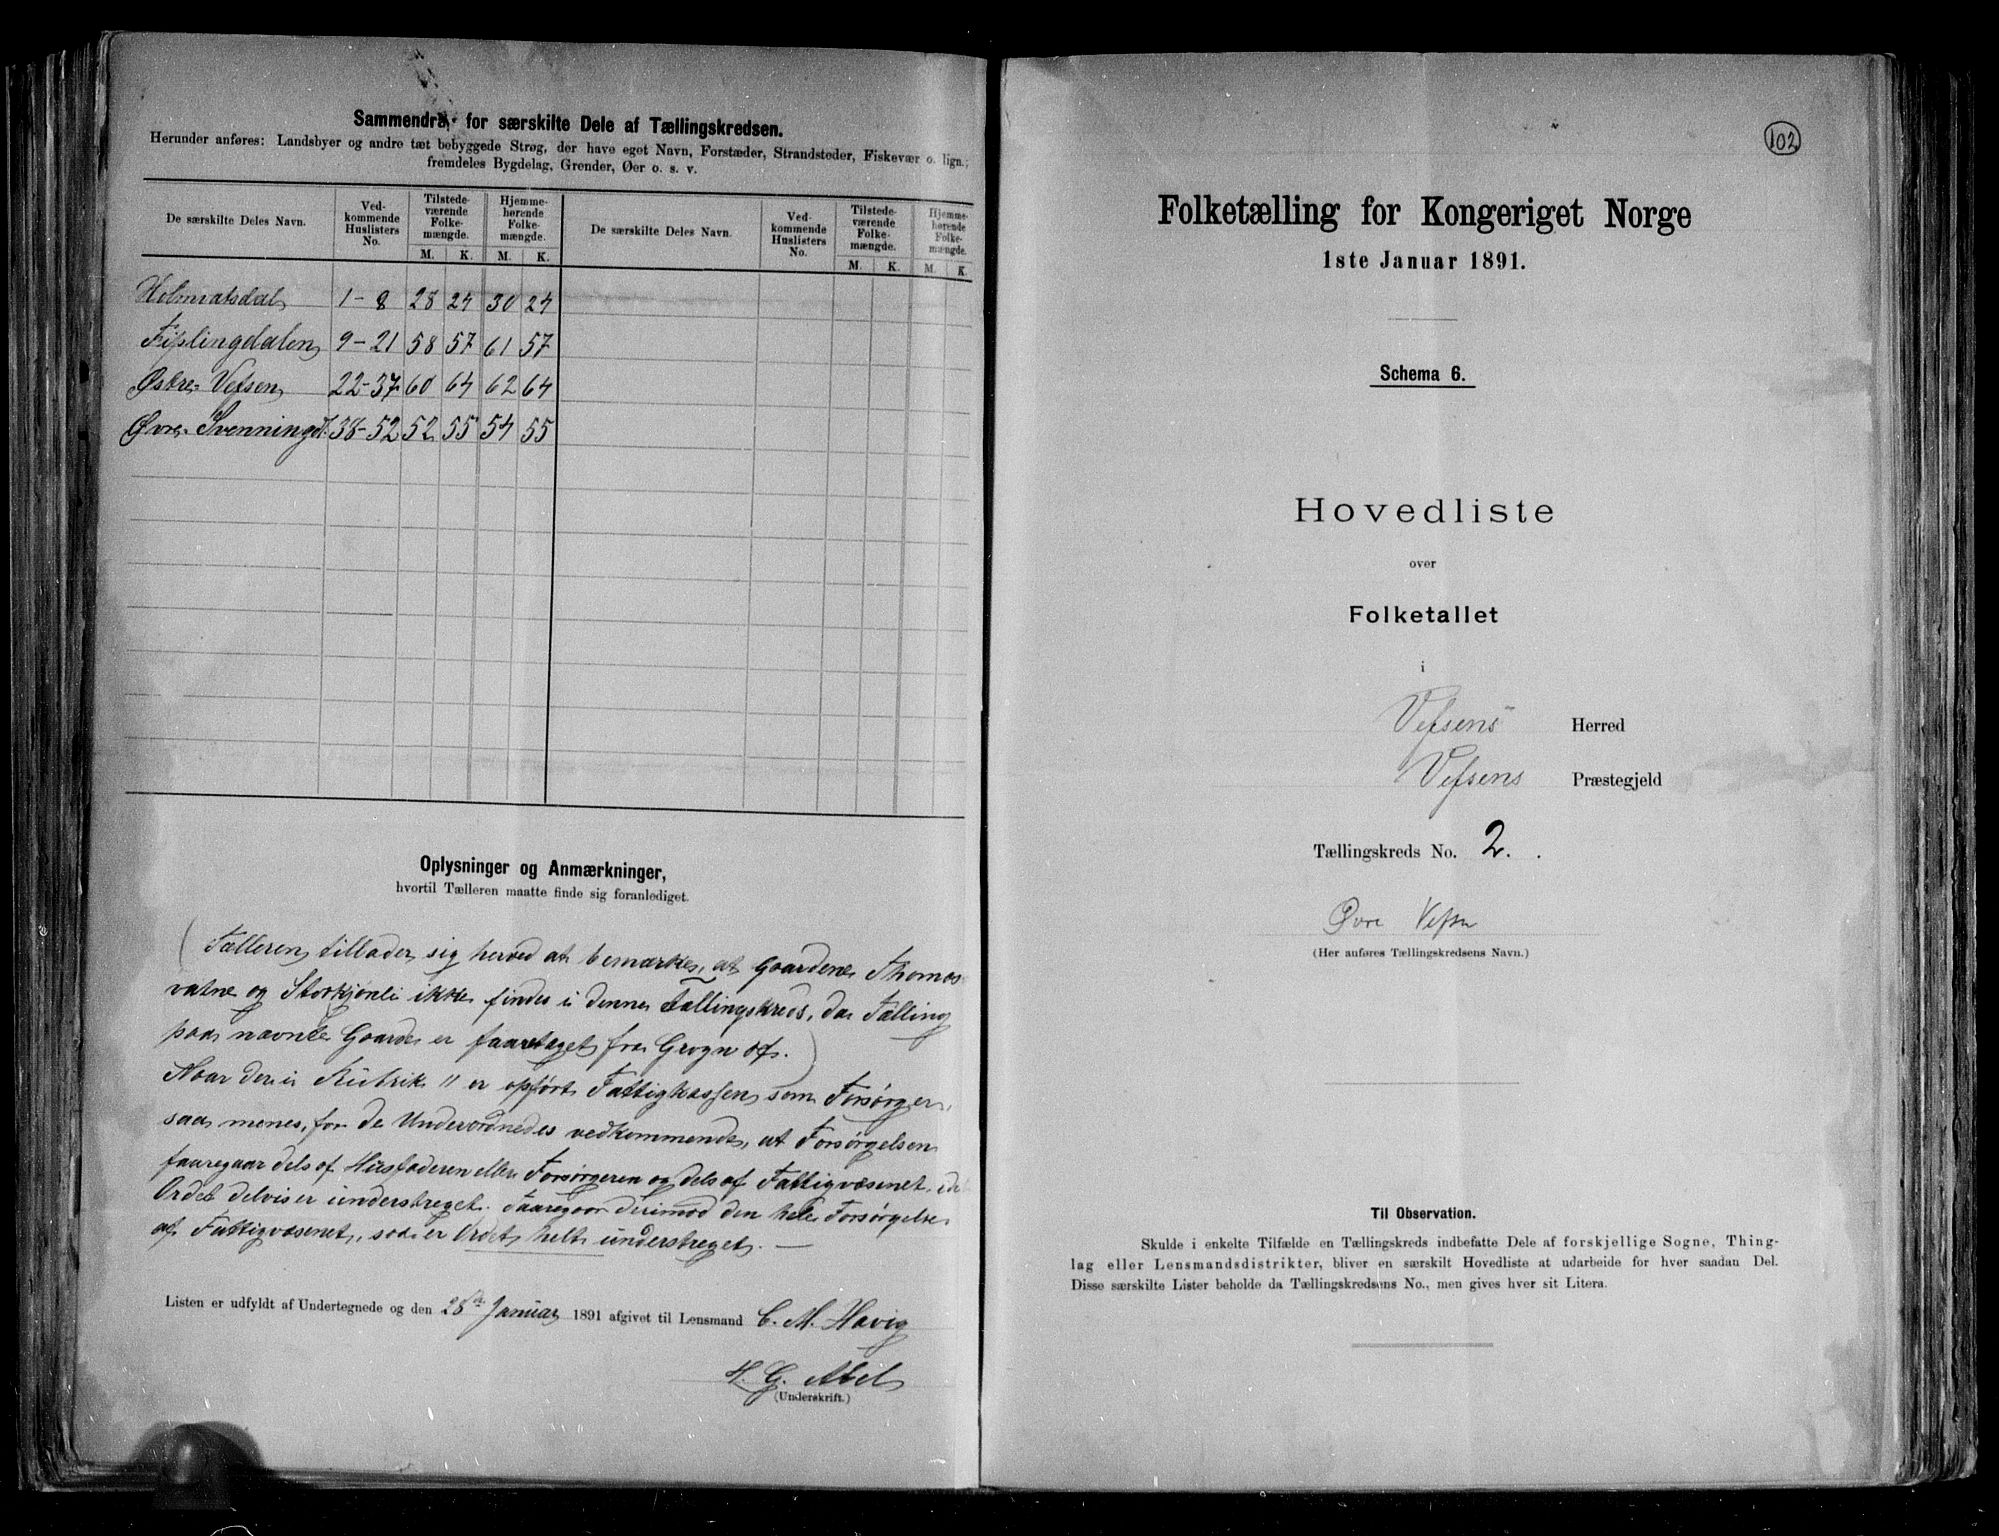 Sammendrag for særskilte Dele af Tællingskredsen.
Herunder anføres: Landsbyer og andre tæt bebyggede Strøg, der have eget Navn, Forstæder, Strandsteder, Fiskevær o. lign.;
fremdeles Bygdelag, Grender, Øer o. s. v.
De særskilte Deles Navn. Ved-kommende Huslisters No. Tilstede-værende Folke-mængde. Hjemme-hørende Folke-mængde. De særskilte Deles Navn. Ved-kommende Huslisters No. Tilstede-værende Folke-mængde. Hjemme-hørende Folke-mængde.
M. K. M. K. M. K. M. K.
1-8 28 24 30 24
Fiplingdalen 9-21 58 57 61 57
Østre Vefsen 22-37 60 64 62 64
Øvre Svenningd. 38-52 52 55 54 55
Oplysninger og Anmærkninger,
hvortil Tælleren maatte finde sig foranlediget.
(Tælleren tillader sig herved at bemærke, at Gaardene Thomas-
vatne og Storkjønli ikke findes i denne Tællingskreds, da Tælling
paa nævnte Gaarde er faaretaget fra Grogn af.)
Naar der i Rubrik 11 er opført Fattigkassen som Forsørger,
saa menes, for de Underordnedes vedkommende, at Forsørgelsen
faaregaar dels af Husfaderen eller Forsørgeren og dels af Fattigvæsenet, idet
Ordet delvis er understreget. Faaregaar derimod den hele Forsørgelse
af Fattigvæsenet, saa er Ordet helt understreget. —
Listen er udfyldt af Undertegnede og den 28de Januar 1891 afgivet til Lensmand C. M. Havig
H. G. Abel
(Underskrift.)
102
Folketælling for Kongeriget Norge
1ste Januar 1891.
Schema 6.
Hovedliste
over
Folketallet
i
Vefsens Herred
Vefsens Præstegjeld
Tællingskreds No. 2.
Øvre Vefsn
(Her anføres Tællingskredsens Navn.)
Til Observation.
Skulde i enkelte Tilfælde en Tællingskreds indbefatte Dele af forskjellige Sogne, Thing-
lag eller Lensmandsdistrikter, bliver en særskilt Hovedliste at udarbeide for hver saadan Del.
Disse særskilte Lister beholde da Tællingskredsens No., men gives hver sit Litera.